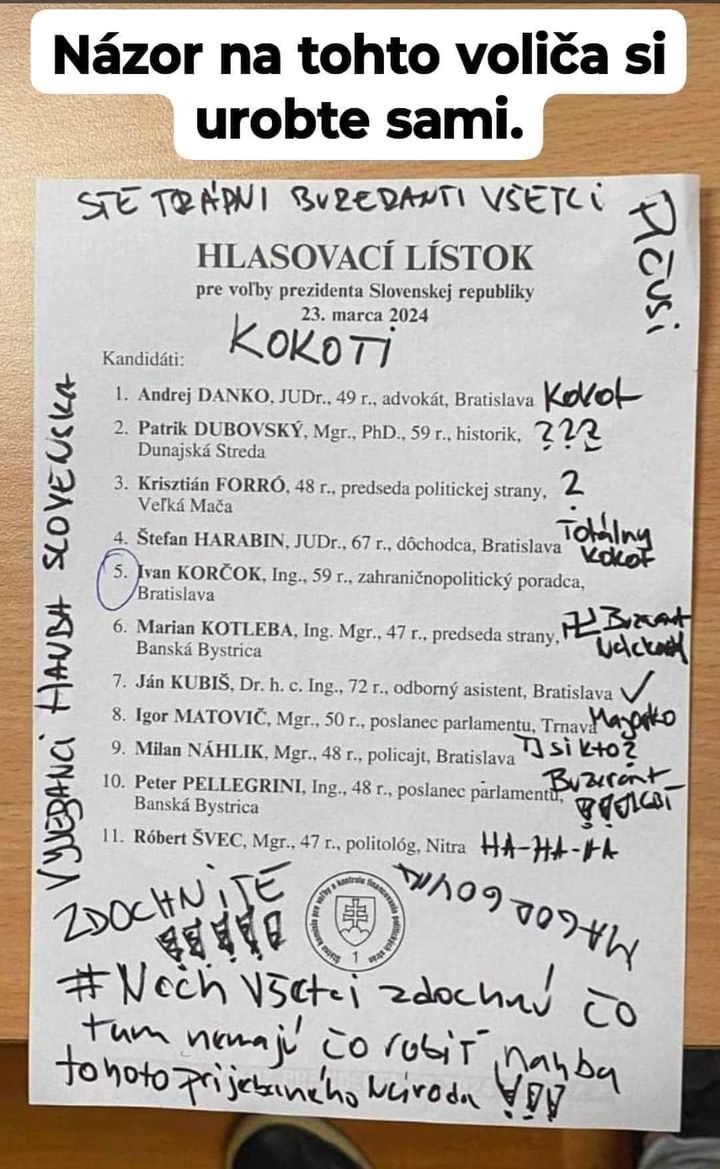 Názor na tohto voliča si
urobte sami.
STE TRÁPNI BUZERANTI VŠETCI
HLASOVACÍ LÍSTOK
pre voľby prezidenta Slovenskej republiky
23. marca 2024
KOKOTI
Kandidáti:
1. Andrej DANKO, JUDr., 49 r., advokát, Bratislava KOKOT
2. Patrik DUBOVSKÝ, Mgr., PhD., 59 r., historik, ???
Dunajská Streda
3. Krisztián FORRÓ, 48 r., predseda politickej strany, ?
Veľká Mača
4. Štefan HARABIN, JUDr., 67 r., dôchodca, Bratislava Totálny
kokot
5. Ivan KORČOK, Ing., 59 r., zahraničnopolitický poradca,
Bratislava
6. Marian KOTLEBA, Ing. Mgr., 47 r., predseda strany, Buzerant
Banská Bystrica
7. Ján KUBIŠ, Dr. h. c. Ing., 72 r., odborný asistent, Bratislava ✓
8. Igor MATOVIČ, Mgr., 50 r., poslanec parlamentu, Trnava Magorko
9. Milan NÁHLIK, Mgr., 48 r., policajt, Bratislava TJ si kto?
10. Peter PELLEGRINI, Ing., 48 r., poslanec parlamentu, Buzerant
Banská Bystrica
11. Róbert ŠVEC, Mgr., 47 r., politológ, Nitra HA-HA-HA
VYJEBANCI HANBA SLOVENSKA
ZDOCHNITE
!!!!!
1
#Nech všetci zdochnú čo
tum nemajú čo robiť hanba
tohoto prijebaného národa !!!